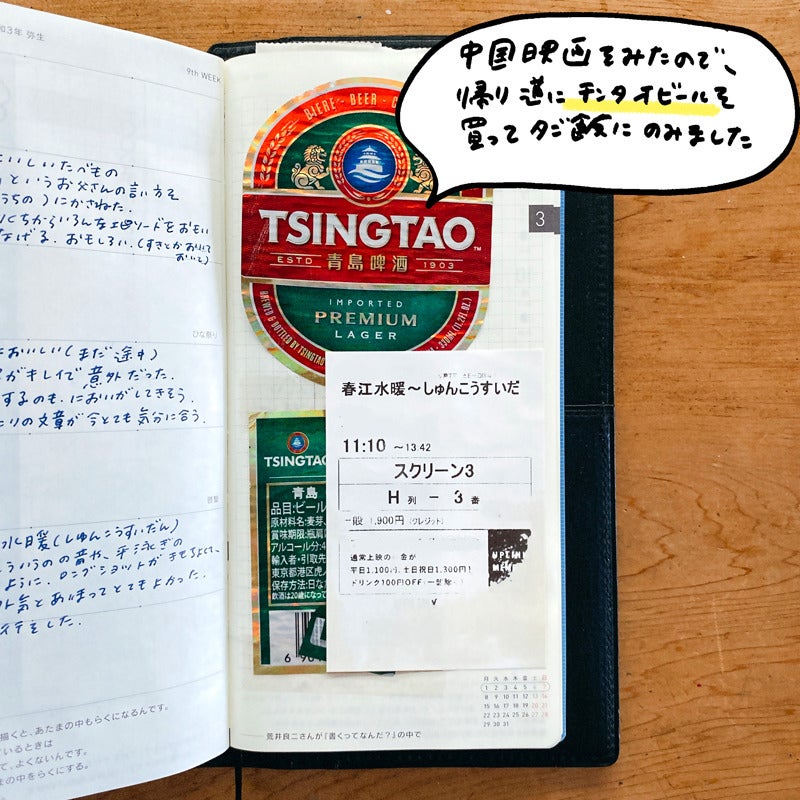 中国映画をみたので、
帰り道にチンタオビールを
買って夕ご飯にのみました
和3年 弥生
9th WEEK
おいしいたべもの
というお父さんの言い方を
うちの)にかさねた.
ちからいろんなエピソードをおもい
なげる. おもしろい.(すきとかおいて
おいと)
ひな祭り
おいしい(まだ途中)
がキレイで意外だった.
するのも.においがしてきそう.
の文章が今とても気分に合う.
啓蟄
水暖(しゅんこうすいだん)
いうのの音や、平泳ぎの
ように、ロングショットがきもちよくて、
気とあいまってとてもよかった.
をした.
描くと、あたまの中もらくになるんです。
ているときは
て、よくないんです。
まの中をらくにする。
BIERE - BEER
TSINGTAO
ESTD 青島啤酒 1903
IMPORTED
PREMIUM
LAGER
BREWED & BOTTLED BY TSINGTAO
330ML (11.2FL.OZ.)
3
春江水暖〜しゅんこうすいだ
11:10 〜13:42
スクリーン3
H 列 － 3 番
一般 1,900円 (クレジット)
通常上映の 金が
平日1,100円、土日祝日1,300円!
ドリンク100円OFF
TSINGTAO
青島
品目:ビール
原材料名:麦芽、
賞味期限:瓶肩
アルコール分:4
輸入者・引取先
東京都港区虎ノ
保存方法:日な
飲酒は20歳になって
月 火 水 木 金 土 日
1 2 3 4 5 6 7
8 9 10 11 12 13 14
15 16 17 18 19 20 21
22 23 24 25 26 27 28
29 30 31
荒井良二さんが『書くってなんだ?』の中で